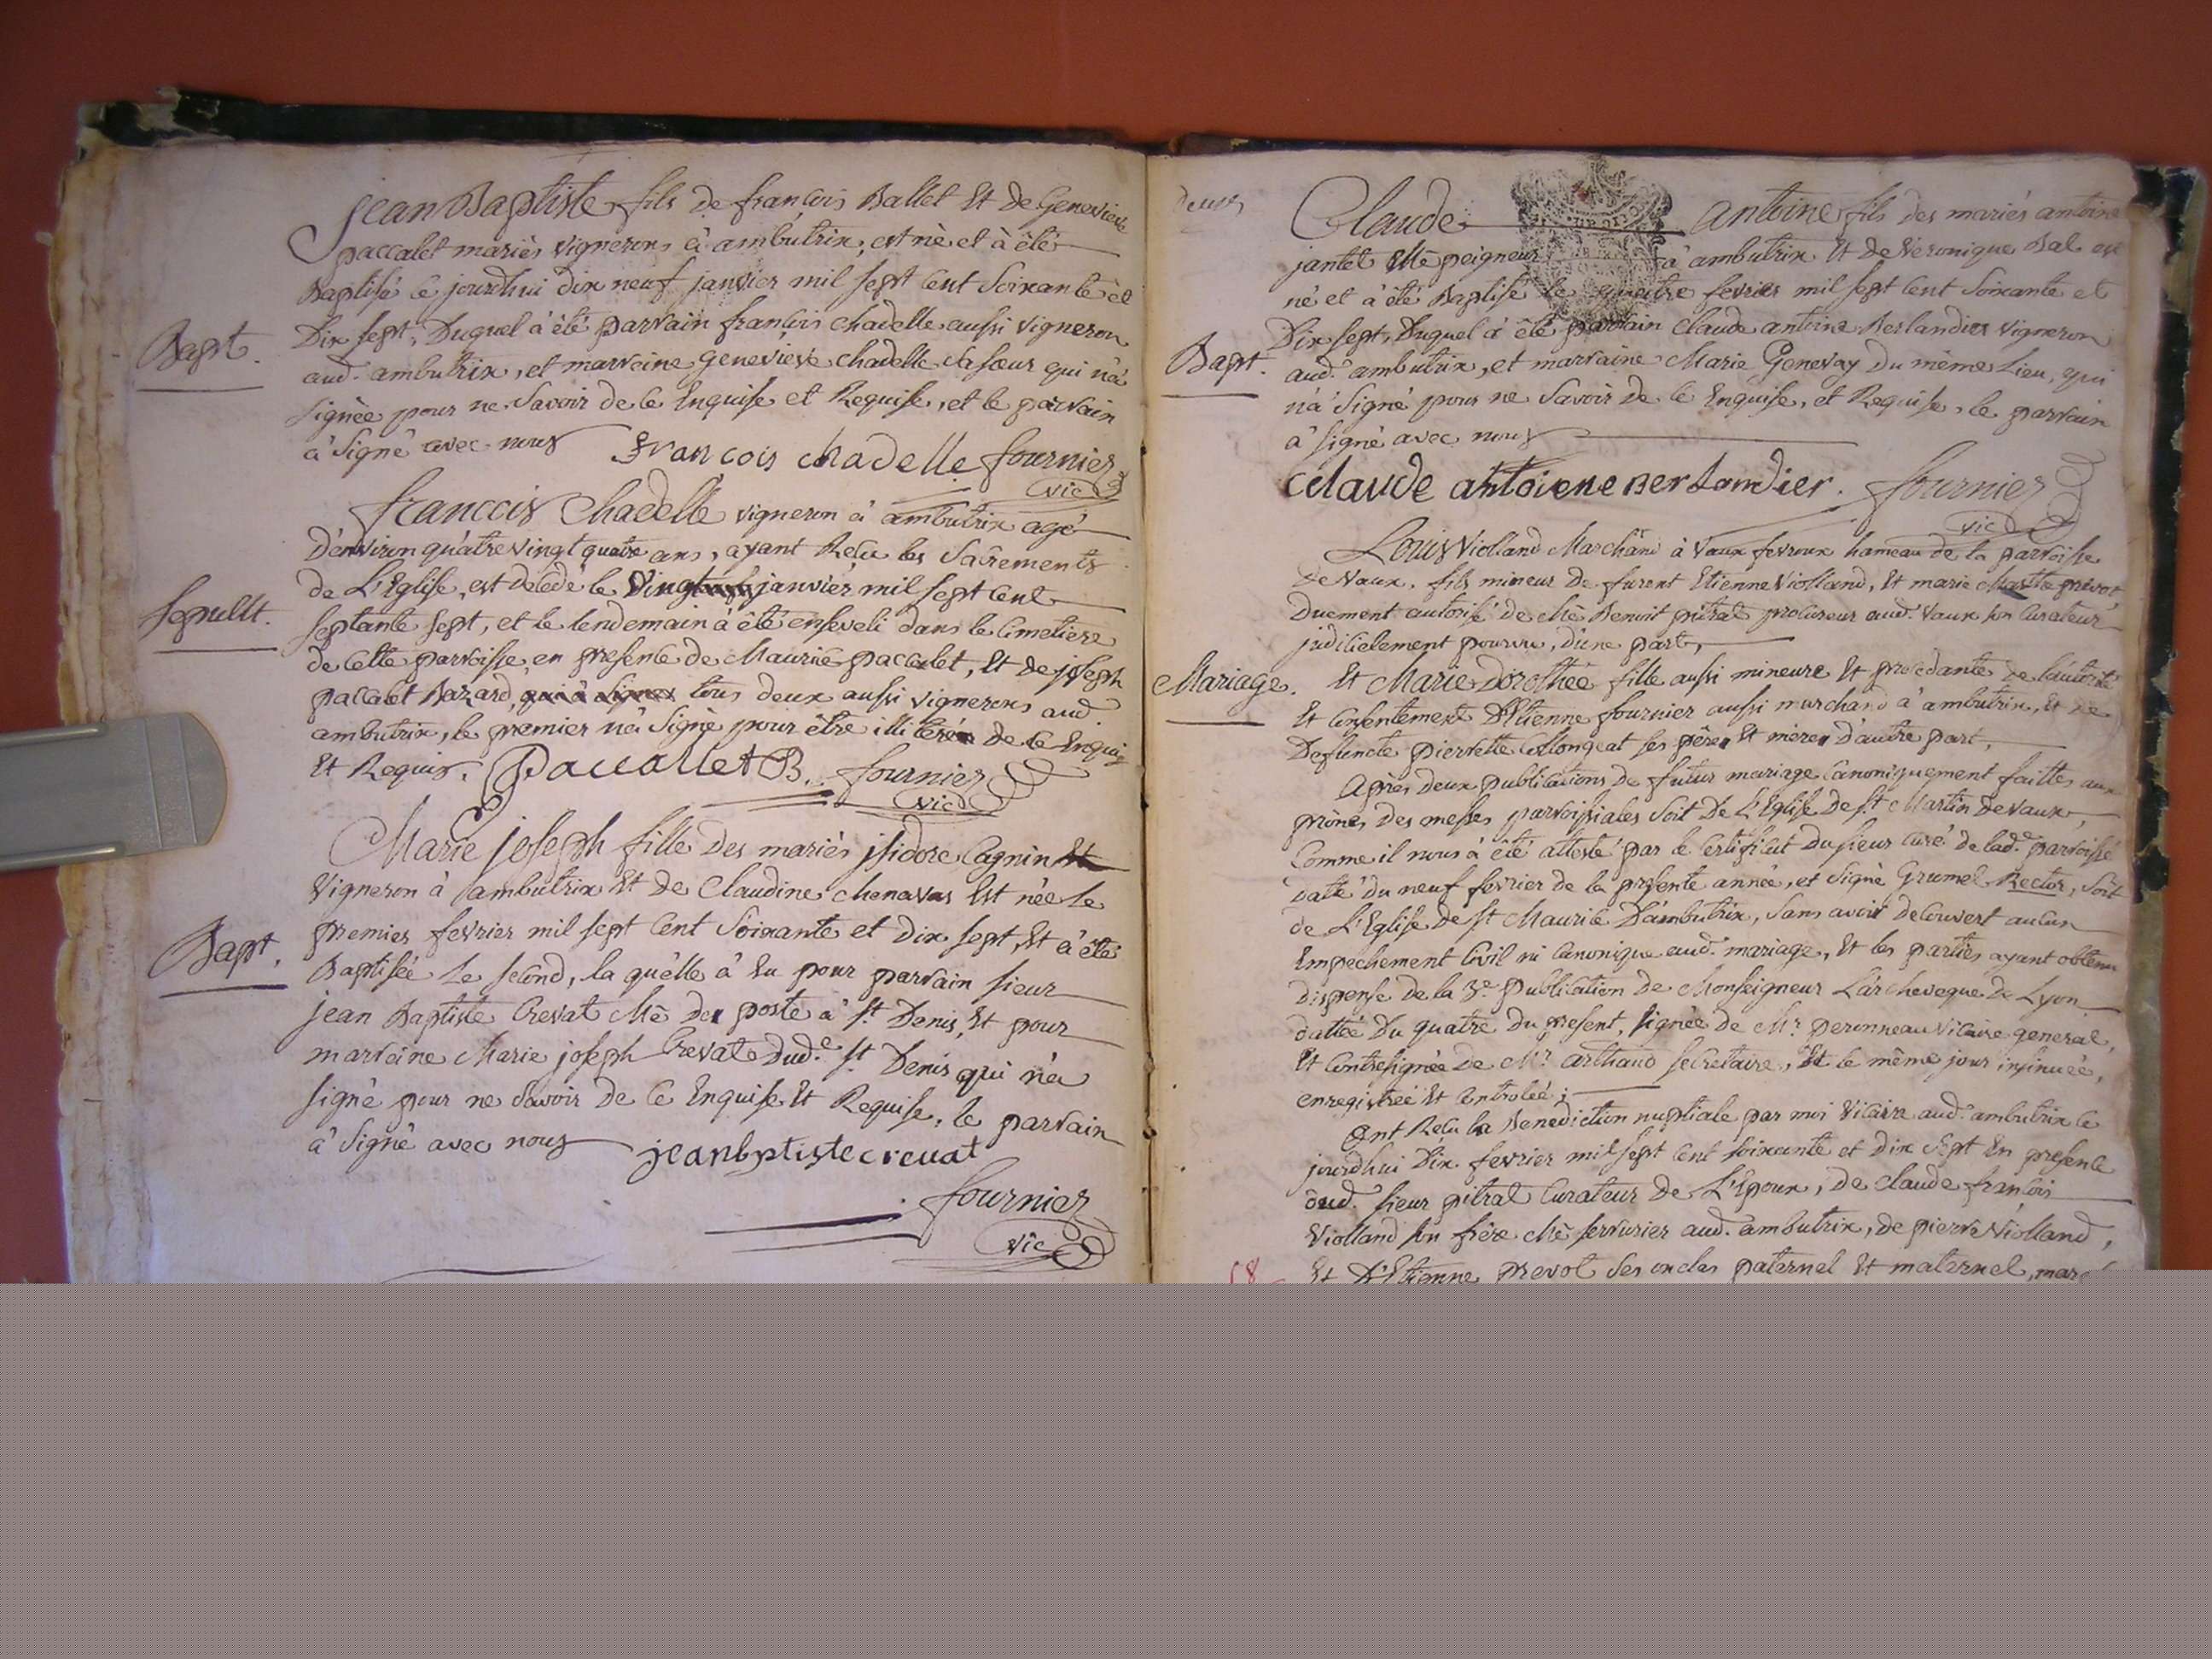 Jean Baptiste fils de françois Ballet Et de Genevieve
paccalet mariés vignerons à ambutrix, est né et à été
Baptisé ce jourd'hui dix neuf janvier mil sept cent soixante et
Dix sept, Duquel à été parrain françois chadelle aussi vigneron
Bapt.
aud. ambutrix, et marraine genevieve chadelle sa sœur qui n'à
signée pour ne savoir de ce Enquise et Requise, et le parrain
à signé avec nous
francois chadelle fournier
vic
francois Chadelle vigneron à ambutrix agé
D'environ quatre vingt quatre ans, ayant Reçu les sacrements
de L'Eglise, est decedé le Vingt janvier mil sept cent
Sepult.
septante sept, et le lendemain à été enseveli dans le cimetiere
de cette parroisse en presence de Maurice paccalet, Et de joseph
paccalet Bazard, tous deux aussi vignerons aud.
ambutrix, le premier n'à signé pour être illiteré de ce Enquis
Et Requis. Paccallet B. fournier
vic
Marie joseph fille des mariés jsidore Cagnin
Vigneron à ambutrix Et de Claudine chenavas Est née le
premier fevrier mil sept cent soixante et dix sept, Et à été
Bapt.
Baptisée le second, la qu'elle à Eu pour parrain sieur
jean Baptiste Crevat Mê de poste à St. Denis, Et pour
marraine Marie joseph Crevat dud.e St. Denis qui n'à
signé pour ne savoir de ce Enquise Et Requise, le parrain
à signé avec nous
jeanbptistecreuat
fournier
vic
deux
Claude antoine fils des mariés antoine
jantet Mê peigneur à ambutrix Et de Veronique Bal est
né et à été Baptisé le quatre fevrier mil sept cent soixante et
Dix sept, Duquel à été parrain Claude antoine Berlandier vigneron
Bapt.
aud. ambutrix, et marraine Marie Genevay du même Lieu, qui
n'à signé pour ne savoir de ce Enquise, et Requise, le parrain
à signé avec nous
Claude antoiene Berlandier. fournier
vic
Louis Violland Marchand à Vaux fevroux hameau de la parroisse
de Vaux, fils mineur de furent Etienne Violland, Et marie prevot
Duement autorisé de Mê Benoit pitrat procureur aud. Vaux son Curateur
judicielement pourvu, D'une part,
Mariage.
Et Marie Dorothée fille aussi mineure Et procedante de l'autorité
Et Consentement D'Etienne fournier aussi marchand à ambutrix, Et de
Defuncte pierrette Collongeat ses père Et mère D'autre part,
Après deux publications de futur mariage Canoniquement faittes aux
prônes des messes parroissiales soit De L'Eglise de St. Martin de Vaux,
Comme il nous à été attesté par le Certificat du sieur Curé de lad.e parroisse
daté du neuf fevrier de la presente année, et signé Grumel Rector, soit
de L'Eglise de St Maurice D'ambutrix, sans avoir decouvert aucun
Empechement Civil ni Canonique aud. mariage, Et les parties ayant obtenu
dispense de la 3e. publication de Monseigneur L'archeveque de Lyon
dattée Du quatre du present, signée de Mr. peronneau Vicaire general,
Et Contresignée de Mr. arthaud secretaire, Et le même jour insinuée,
enregistrée Et Controlée;
Ont Reçu la Benediction nuptiale par moi Vicaire aud. ambutrix ce
jourd'hui Dix fevrier mil sept cent soixante et dix sept En presence
dud. sieur pitrat Curateur de L'Epoux, de claude françois
Violland son frère Mê serrurier aud. ambutrix, de pierre Violland,
Et D'Etienne prevot ses oncles paternel Et maternel,